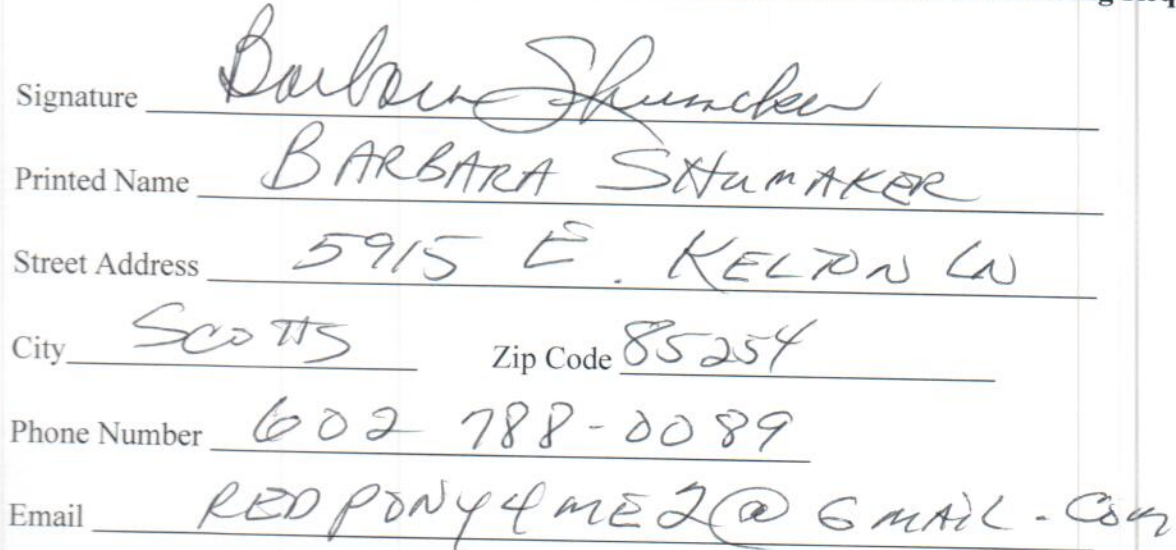 Signature Barbara Shumaker
Printed Name BARBARA SHUMAKER
Street Address 5915 E. KELTON LN
City SCOTTS Zip Code 85254
Phone Number 602 788-0089
Email REDPONY4ME2@GMAIL.COM